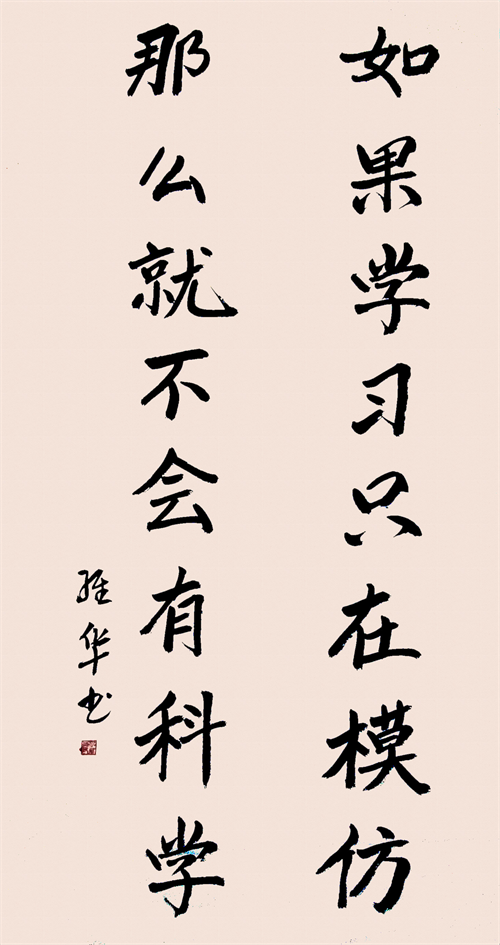 如果学习只在模仿
那么就不会有科学
维华书